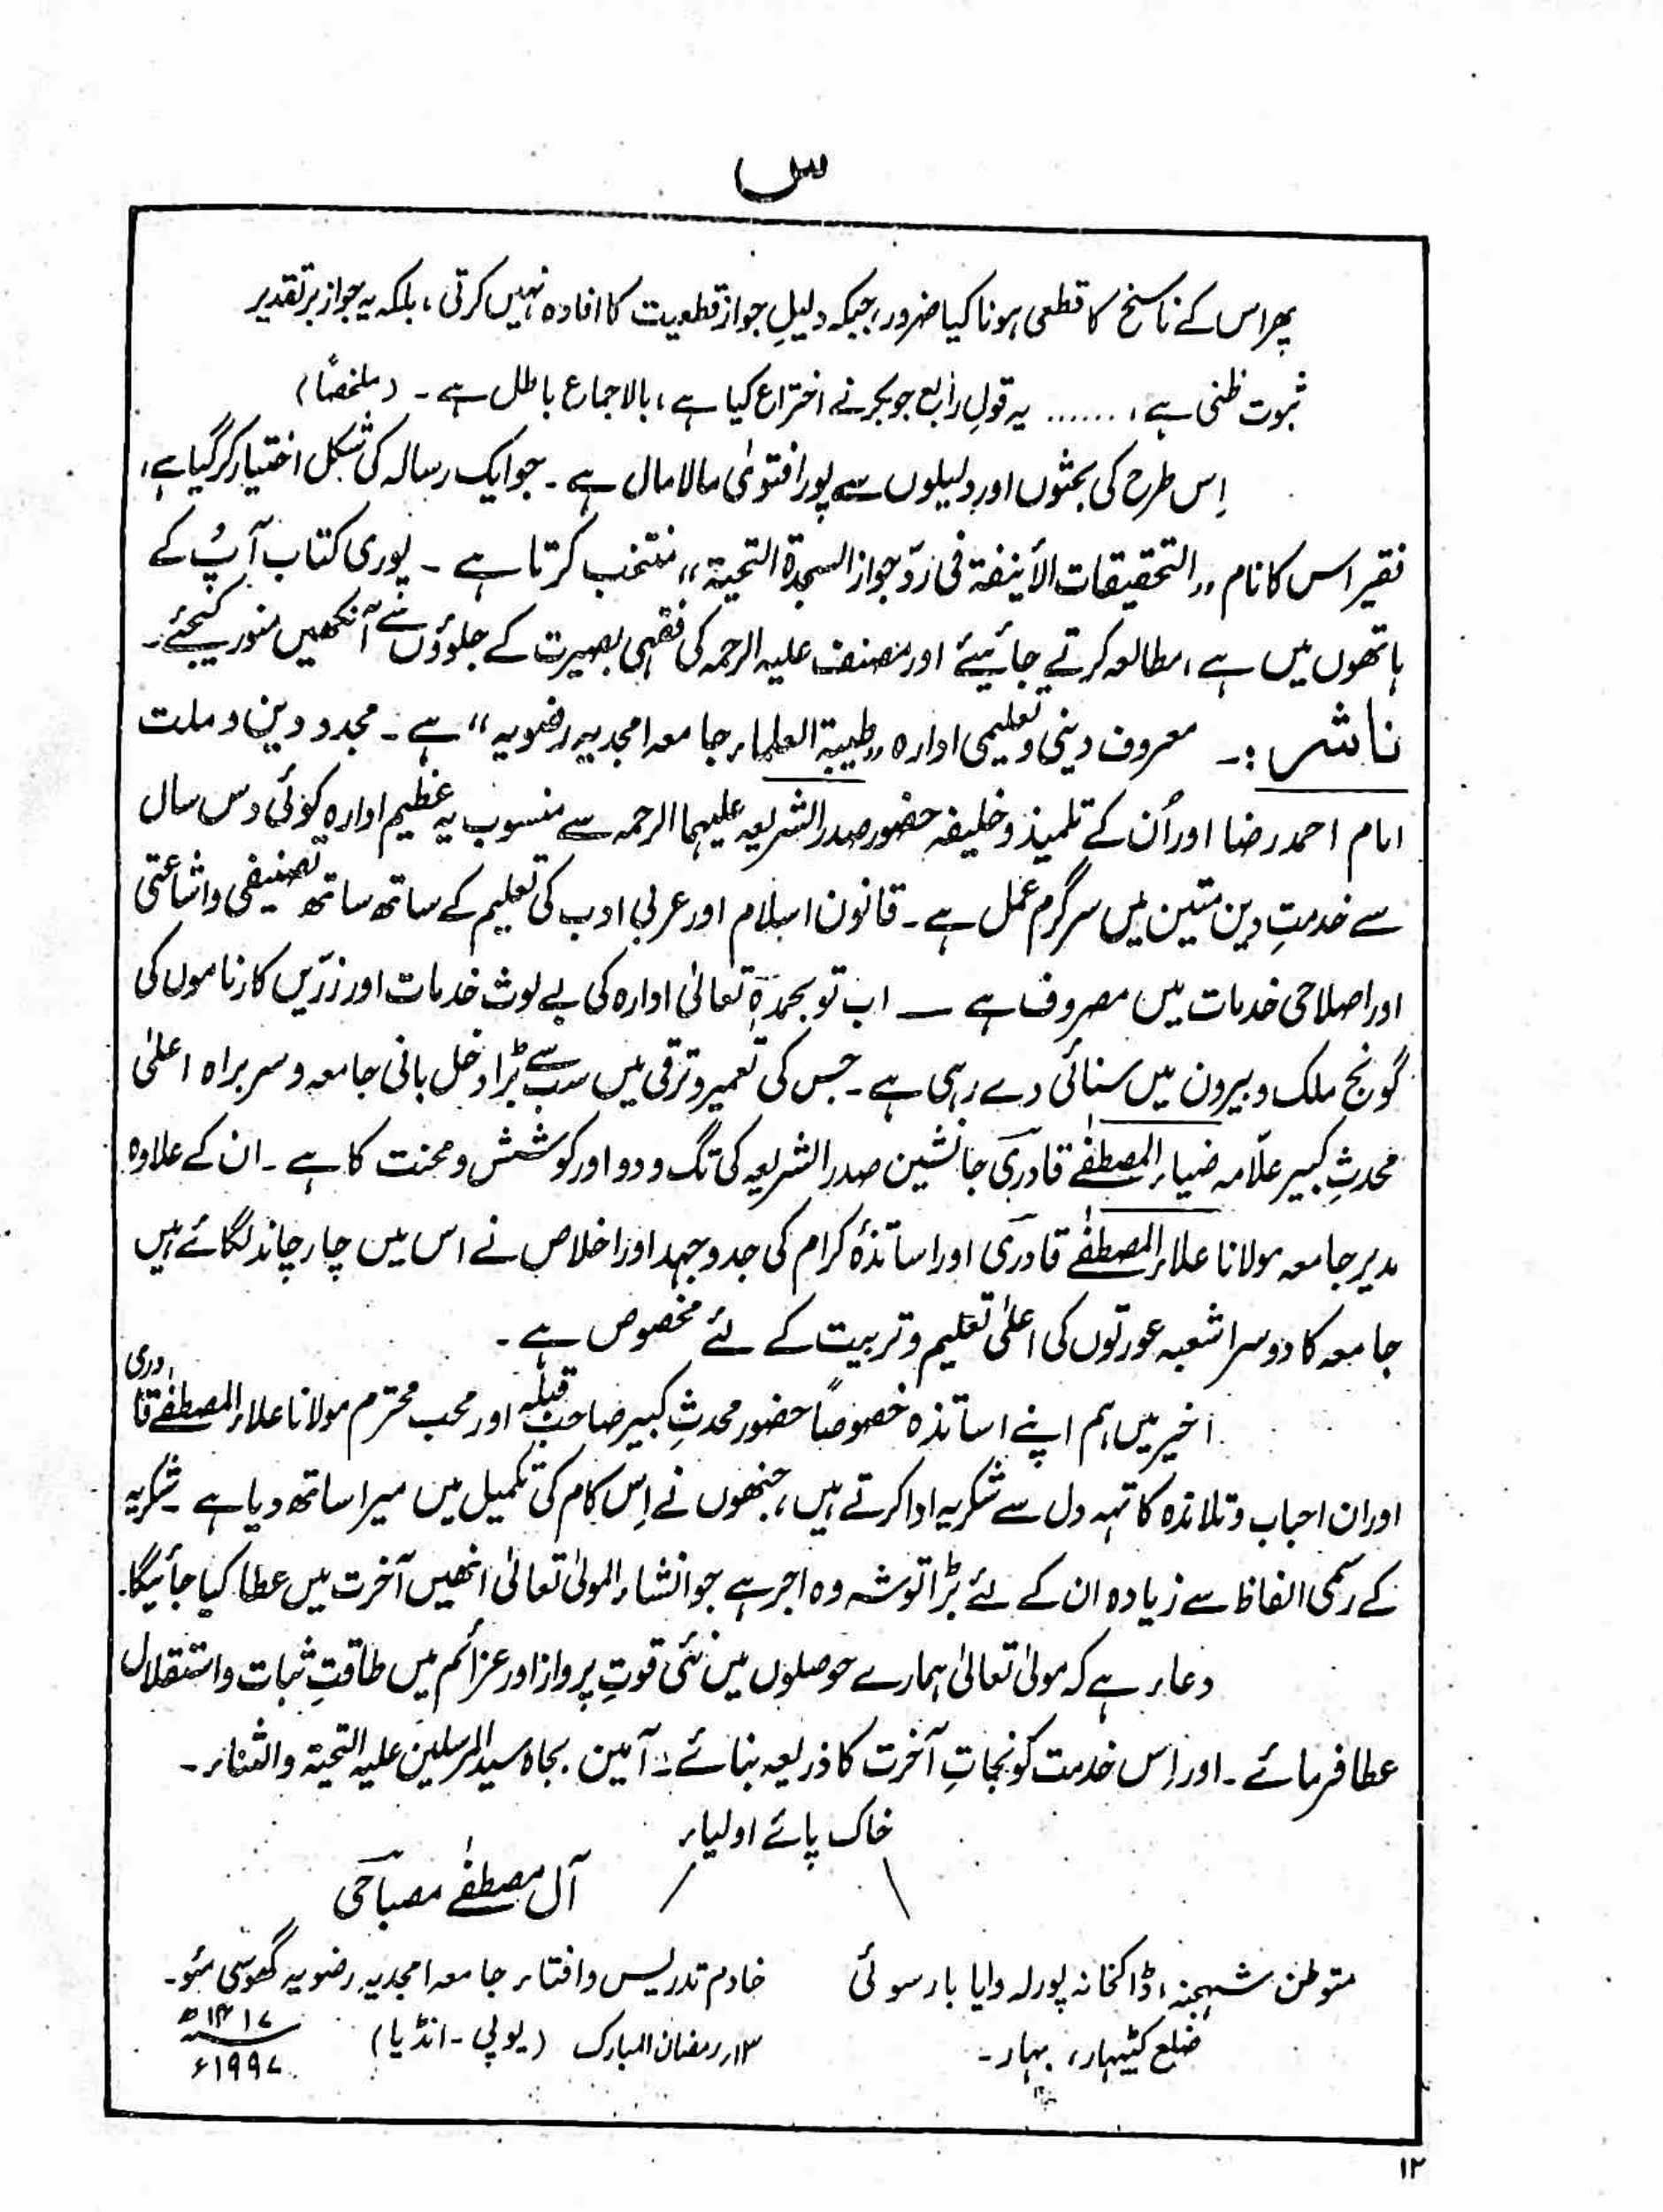 س
پھر اس کے ناسخ کا قطعی ہونا کیا ضرور، جبکہ دلیلِ جواز قطعیت کا افادہ نہیں کرتی، بلکہ یہ جواز بر تقدیر
ثبوت ظنی ہے، ...... یہ قولِ رابع جو بکر نے اختراع کیا ہے، بالاجماع باطل ہے ۔ (ملخصاً)
اِس طرح کی بحثوں اور دلیلوں سے پورا فتویٰ مالا مال ہے ۔ جو ایک رسالہ کی شکل اختیار کر گیا ہے،
فقیر اس کا نام ,,التحقیقات الأنیفۃ فی ردّ جواز السجدۃ التحیۃ،، منتخب کرتا ہے ۔ پوری کتاب آپ کے
ہاتھوں میں ہے، مطالعہ کرتے جائیئے اور مصنف علیہ الرحمہ کی فقہی بصیرت کے جلوؤں سے آنکھیں منور کیجئے۔
ناشر :۔ معروف دینی و تعلیمی ادارہ ,,طیبۃ العلماء جامعہ امجدیہ رضویہ،، ہے ۔ مجدد دین و ملت
امام احمد رضا اور اُن کے تلمیذ و خلیفہ حضور صدر الشریعہ علیہما الرحمہ سے منسوب یہ عظیم ادارہ کوئی دس سال
سے خدمتِ دین متین میں سرگرم عمل ہے ۔ قانون اسلام اور عربی ادب کی تعلیم کے ساتھ ساتھ تصنیفی و اشاعتی
اور اصلاحی خدمات میں مصروف ہے ــ اب تو بحمدہٖ تعالیٰ ادارہ کی بے لوث خدمات اور زرّیں کارناموں کی
گونج ملک و بیرون میں سنائی دے رہی ہے ۔ جس کی تعمیر و ترقی میں سب سے بڑا دخل بانی جامعہ و سربراہ اعلیٰ
محدثِ کبیر علّامہ ضیاء المصطفٰے قادری جانشین صدر الشریعہ کی تگ و دو اور کوشش و محنت کا ہے ۔ ان کے علاوہ
مدیر جامعہ مولانا علاء المصطفٰے قادری اور اساتذۂ کرام کی جد و جہد اور اخلاص نے اس میں چار چاند لگائے ہیں
جامعہ کا دوسرا شعبہ عورتوں کی اعلیٰ تعلیم و تربیت کے لئے مخصوص ہے ۔
اخیر میں ہم اپنے اساتذہ خصوصاً حضور محدثِ کبیر صاحب قبلہ اور محب محترم مولانا علاء المصطفٰے قادری
اور ان احباب و تلامذہ کا تہہ دل سے شکریہ ادا کرتے ہیں، جنھوں نے اِس کام کی تکمیل میں میرا ساتھ دیا ہے ۔ شکریہ
کے رسمی الفاظ سے زیادہ ان کے لئے بڑا توشہ وہ اجر ہے جو انشاء المولیٰ تعالیٰ انھیں آخرت میں عطا کیا جائیگا۔
دعاء ہے کہ مولیٰ تعالیٰ ہمارے حوصلوں میں نئی قوتِ پرواز اور عزائم میں طاقتِ ثبات و استقلال
عطا فرمائے ۔ اور اِس خدمت کو نجاتِ آخرت کا ذریعہ بنائے :۔ آمین . بجاہ سید المرسلین علیہ التحیۃ والثناء ۔
خاک پائے اولیاء
آل مصطفٰے مصباحی
متوطن شہجنہ، ڈاکخانہ پورلہ وایا بارسوئی
ضلع کٹیہار، بہار ۔
خادم تدریس و افتاء جامعہ امجدیہ رضویہ گھوسی مئو۔
۱۳؍ رمضان المبارک (یو پی ۔ انڈیا)
۱۴۱۷ھ
۱۹۹۷ء
۱۲